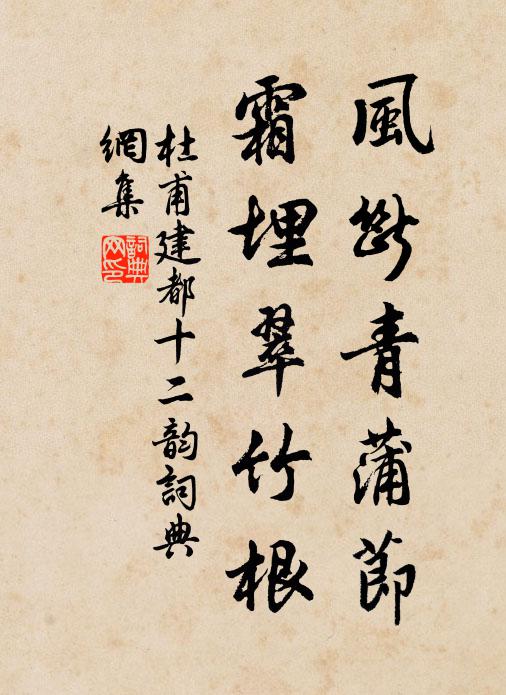 風斷青蒲節
霜埋翠竹根
杜甫建都十二韵詞典
網集
詞典
网印